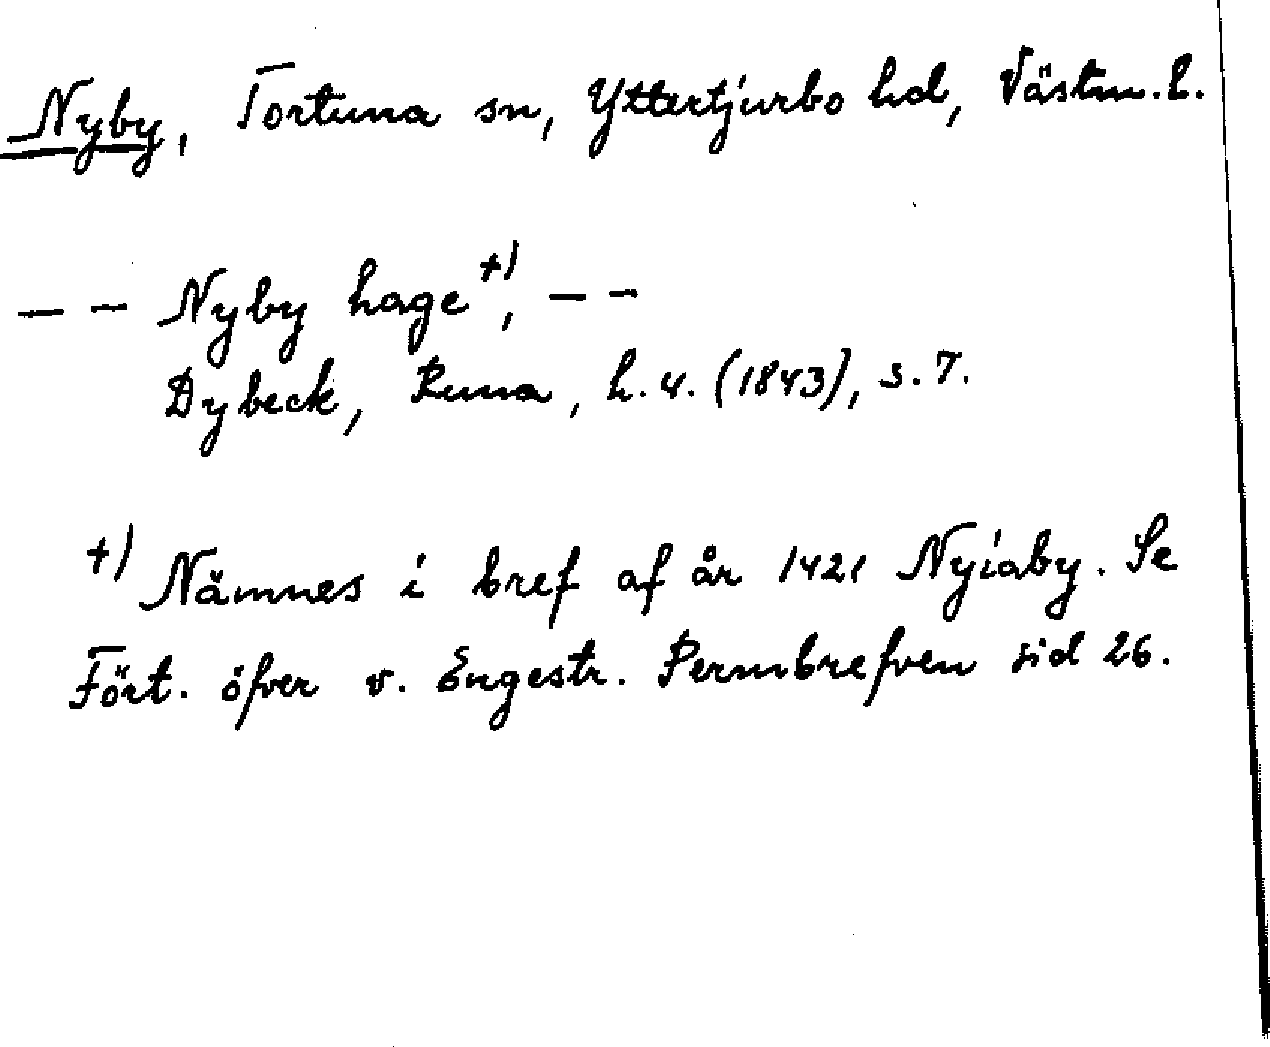 Nyby, Tortuna sn, Yttertjurbo hd, Västm. l.
— — Nyby hage +), — —
Dybeck, Runa, h. 4. (1843), s. 7.
+) Nämnes i bref af år 1421 Nyiaby. Se
Fört. öfver v. Engestr. Permbrefven sid 26.